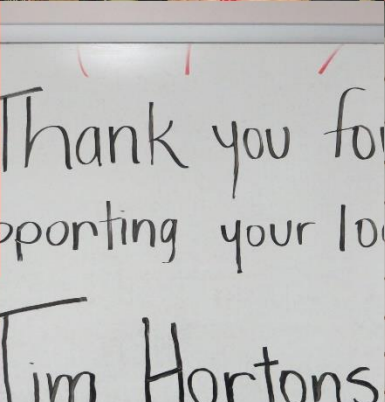 Thank you fo
pporting your lo
Tim Hortons